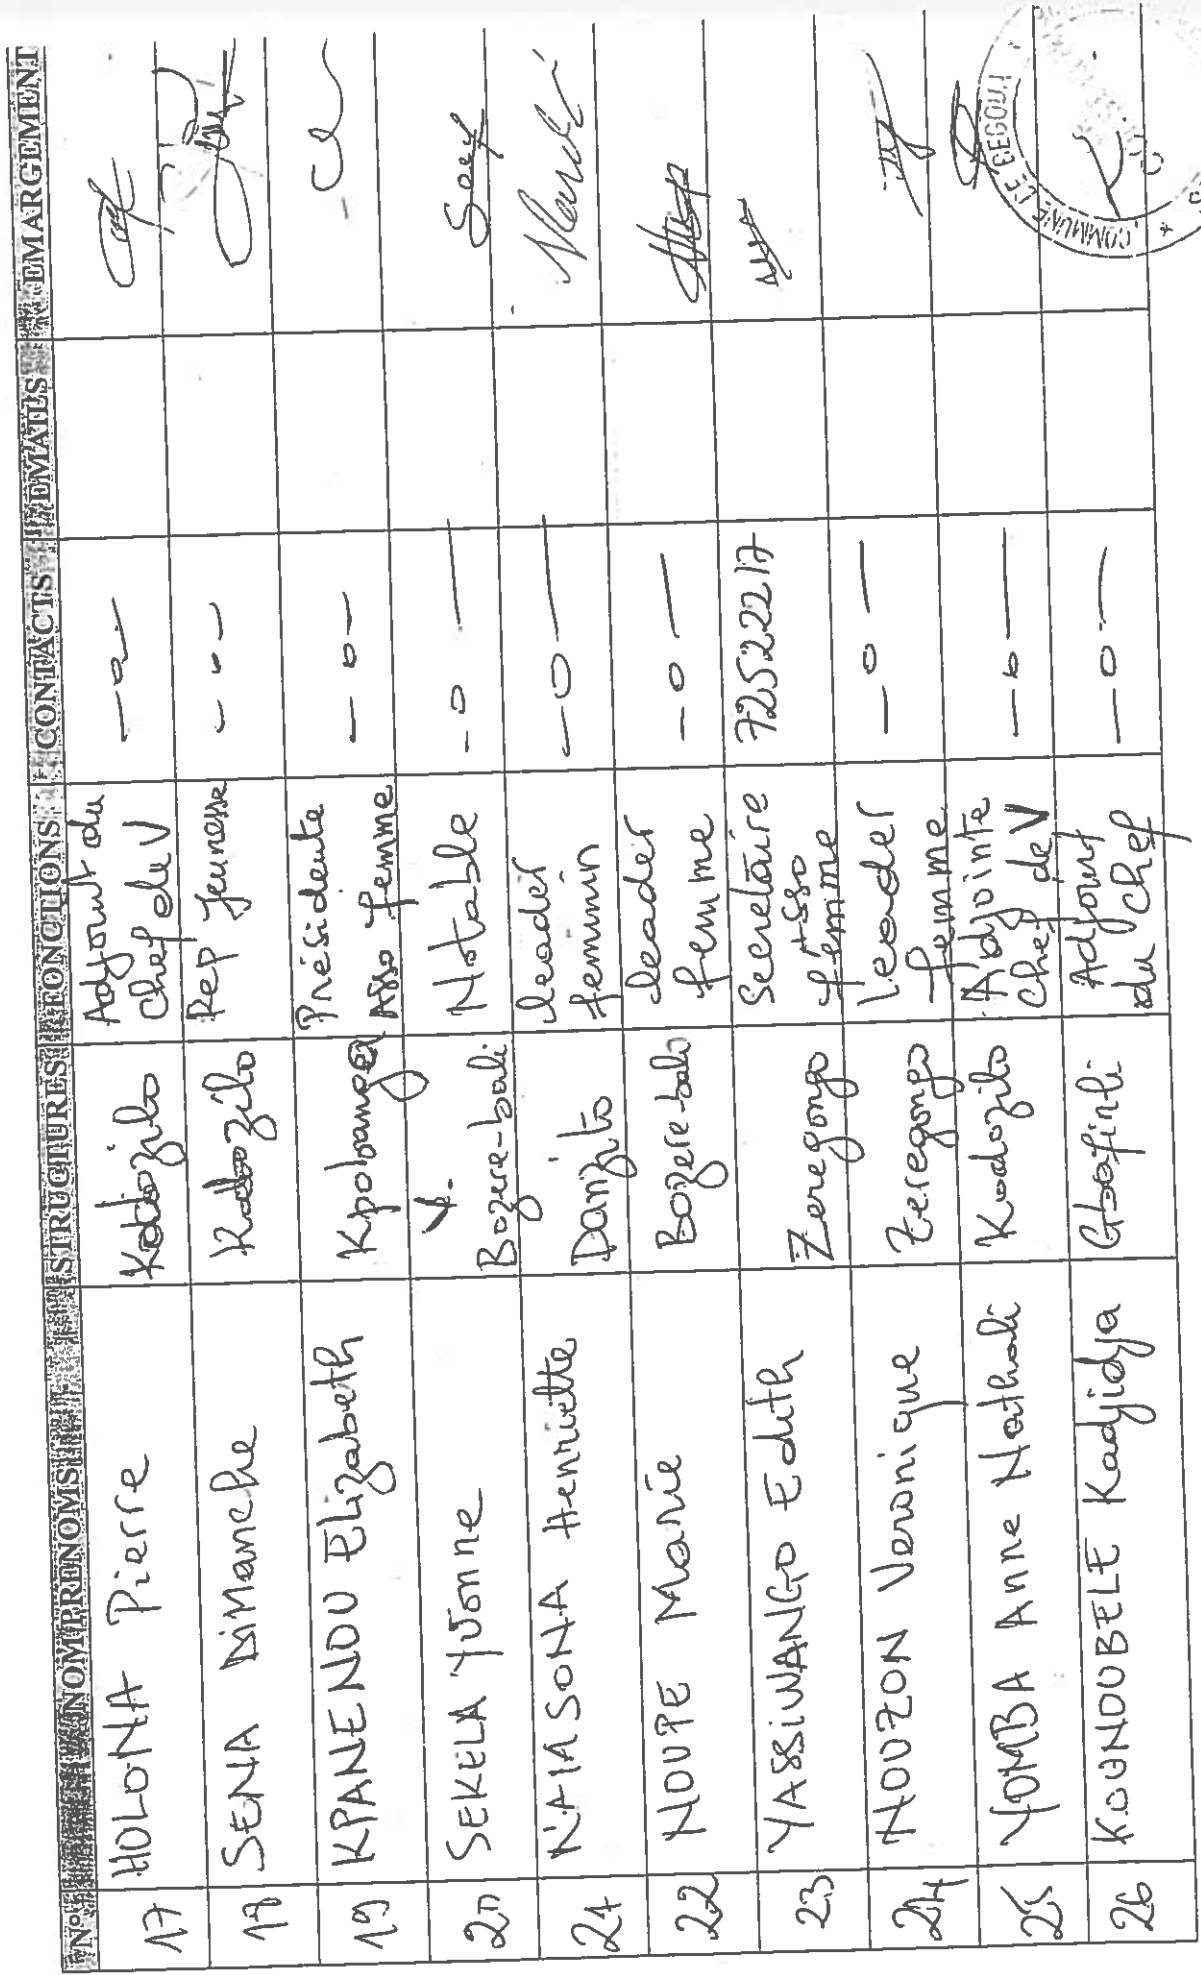 N° NOM PRENOMS STRUCTURES FONCTIONS CONTACTS EMAILS EMARGEMENT
17 HOLONA Pierre Kadozilo Adjoint du —o— 
chef de V
18 SENA DiManche Kadozilo Rep Jeunesse - o -
19 KPANENOU Elizabeth Présidente — o —
Asso femme
20 SEKELA Yvonne Bozere-bali Notable - o —
21 Henriette Danzito leader —o—
feminin
22 NOUPE Marie Bozere-balo leader - o —
femme
23 YASSIWANGO Edith Zeregongo Secrétaire 72522217
Asso
femme
24 NOUZON Veronique Zeregongo Leader - o —
femme
25 YOMBA Anne Nathali Kodozilo Adjointe — o —
Chef de V
26 KOUNOUBELE Kadjidja Gbafinli Adjoint — o —
du chef
COMMUNE DE BEGOUI